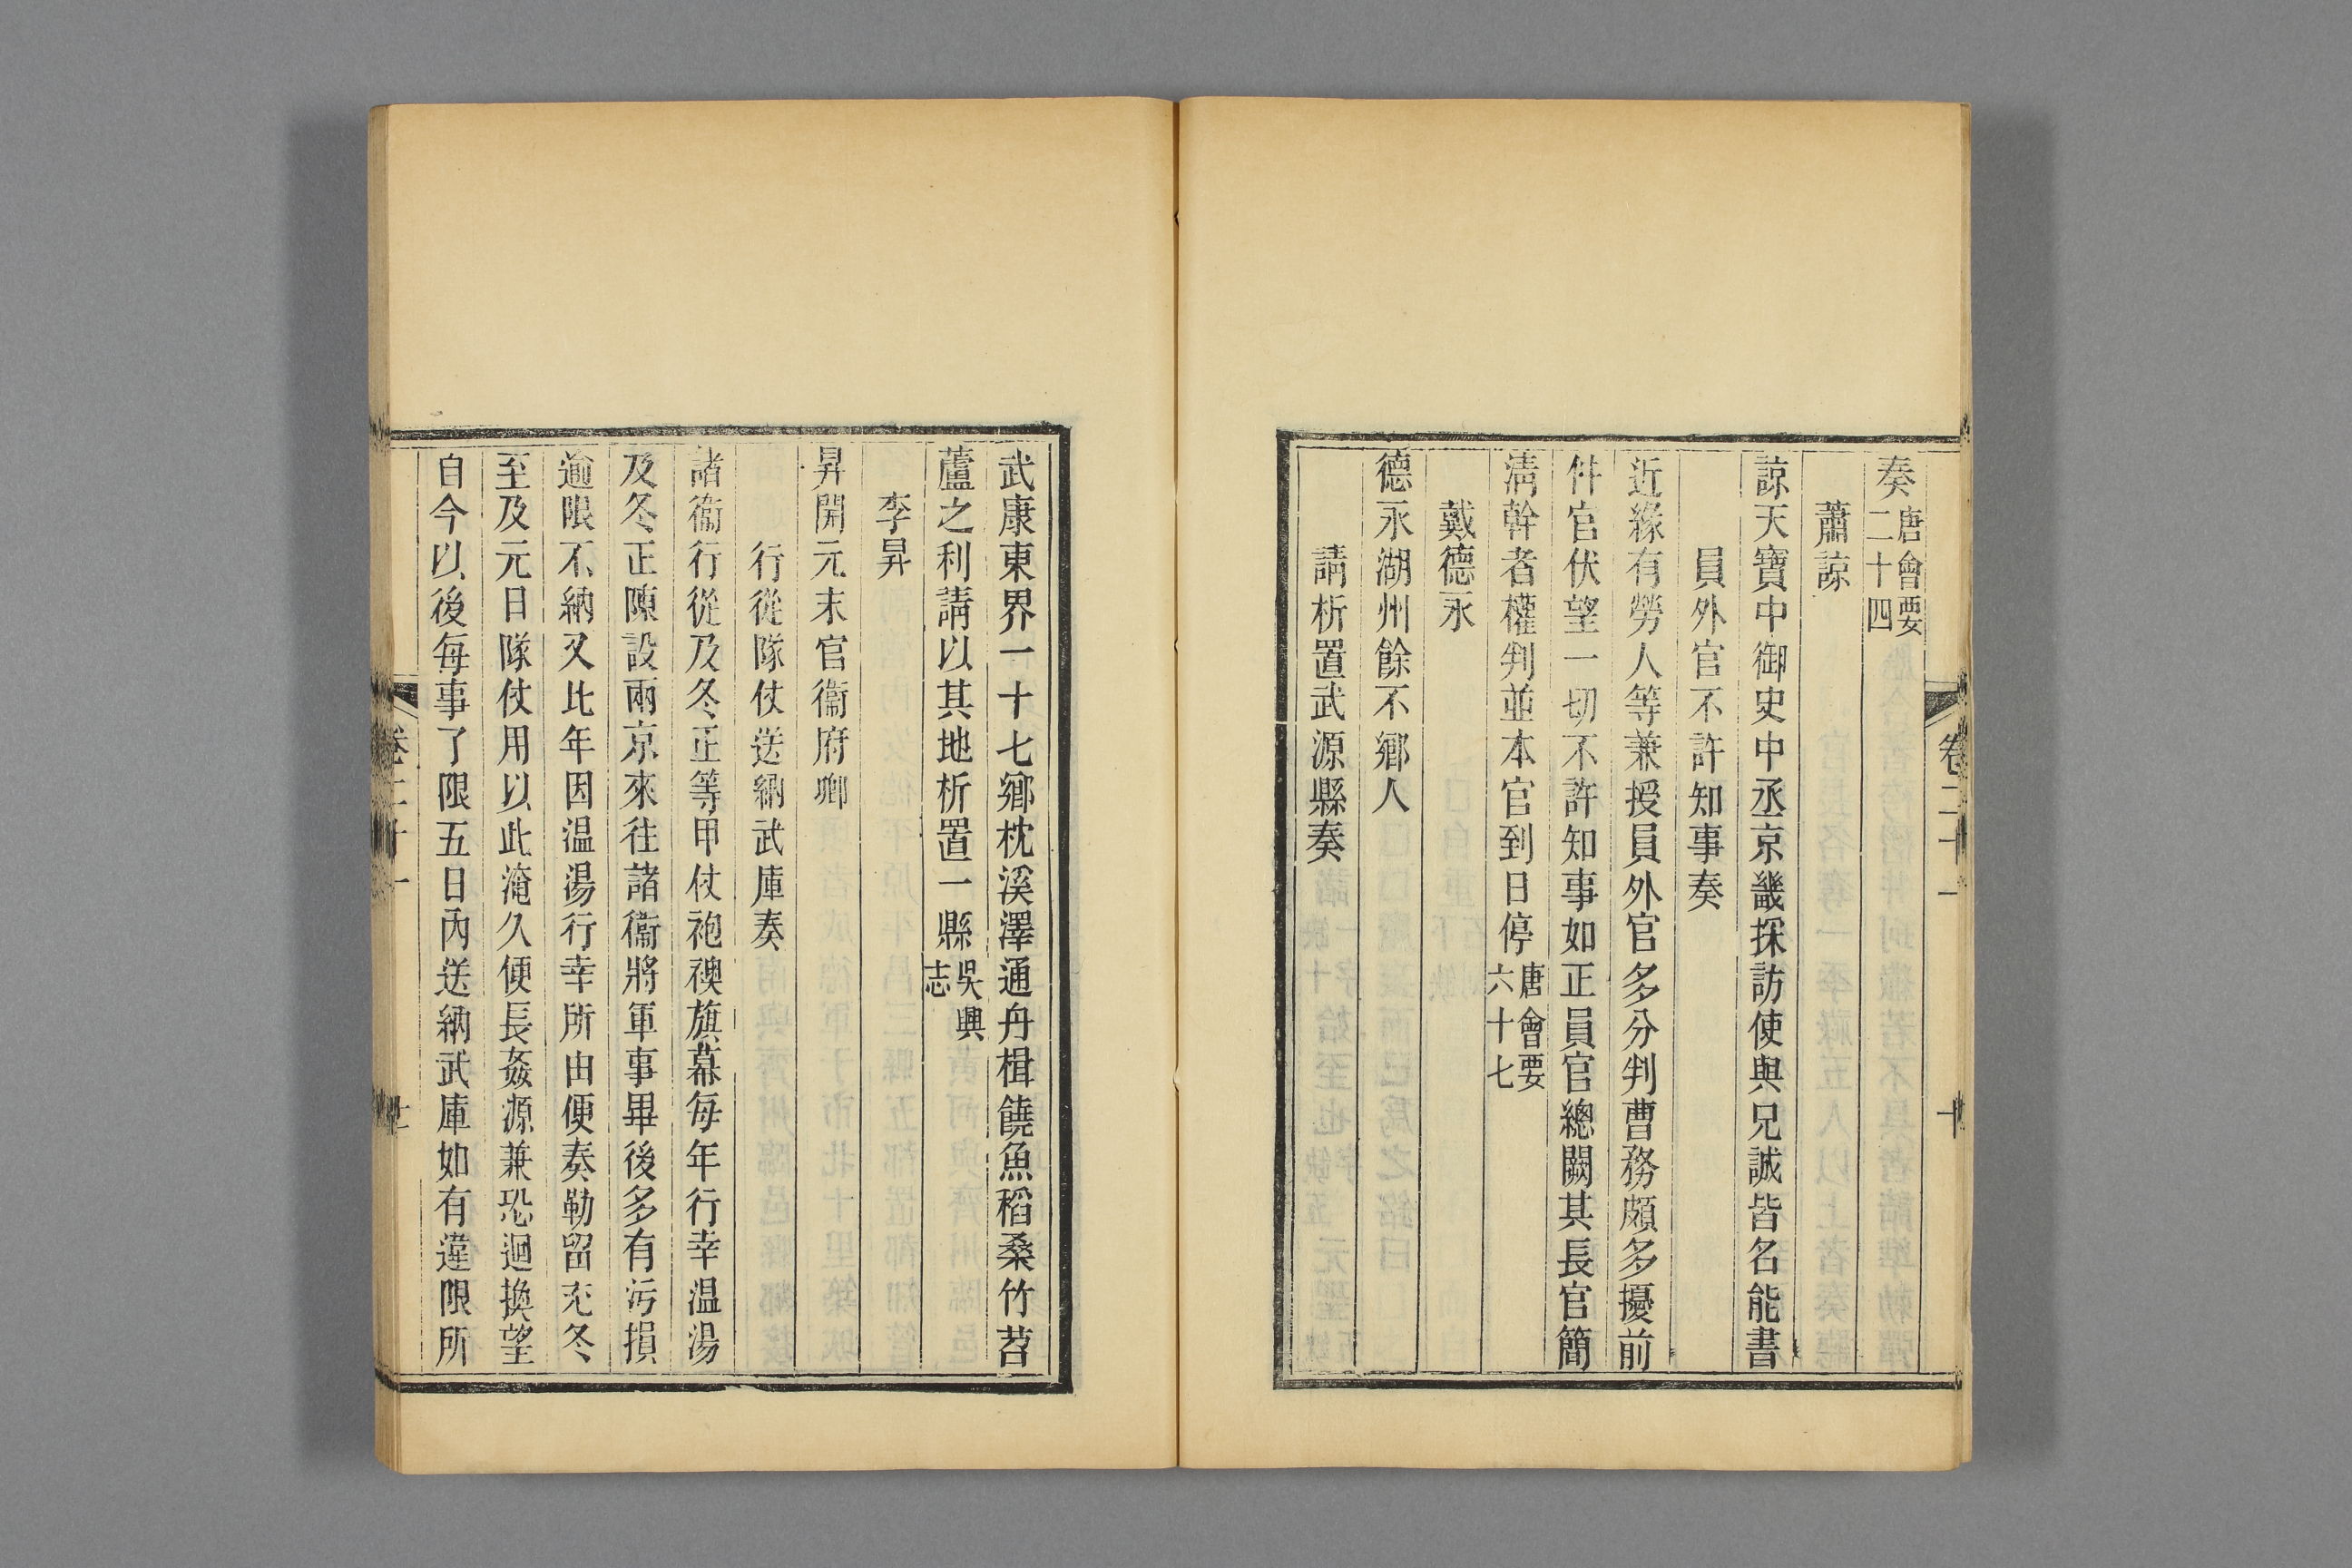 卷二十一
十
奏唐會要二十四
蕭諒
諒天寶中御史中丞京畿採訪使與兄誠皆名能書
員外官不許知事奏
近緣有勞人等兼授員外官多分判曹務頗多擾前
件官伏望一切不許知事如正員官總闕其長官簡
清幹者權判並本官到日停唐會要六十七
戴德永
德永湖州餘不鄉人
請析置武源縣奏
武康東界一十七鄉枕溪澤通舟楫饒魚稻桑竹苕
蘆之利請以其地析置一縣吳興志
李昇
昇開元末官衞府卿
行從隊仗送納武庫奏
諸衞行從及冬正等甲仗袍襖旗幕每年行幸温湯
及冬正陳設兩京來往諸衞將軍事畢後多有污損
逾限不納又比年因温湯行幸所由便奏勒留充冬
至及元日隊仗用以此淹久便長姦源兼恐迴換望
自今以後每事了限五日內送納武庫如有違限所
卷二十一